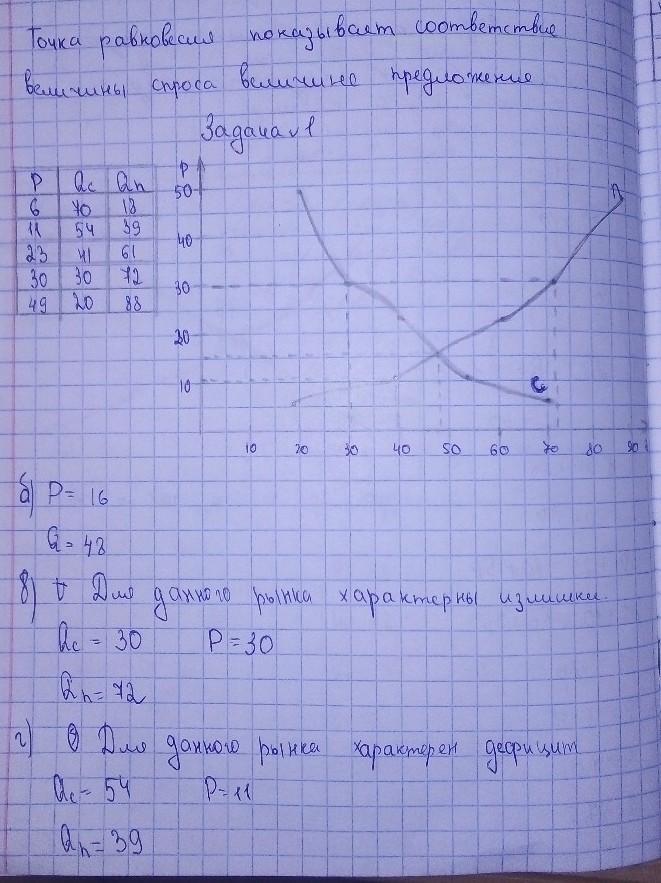 Точка равновесия показывает соответствие
величины спроса величине предложение
Задача √1
P Qc Qп
6 70 18
11 54 39
23 41 61
30 30 72
49 20 88
P
50
40
30
20
10
10 20 30 40 50 60 70 80 90
П
С
б) P = 16
Q = 48
в) Для данного рынка характерны излишки.
Qc = 30 P = 30
Qп = 72
г) Для данного рынка характерен дефицит
Qc = 54 P = 11
Qп = 39